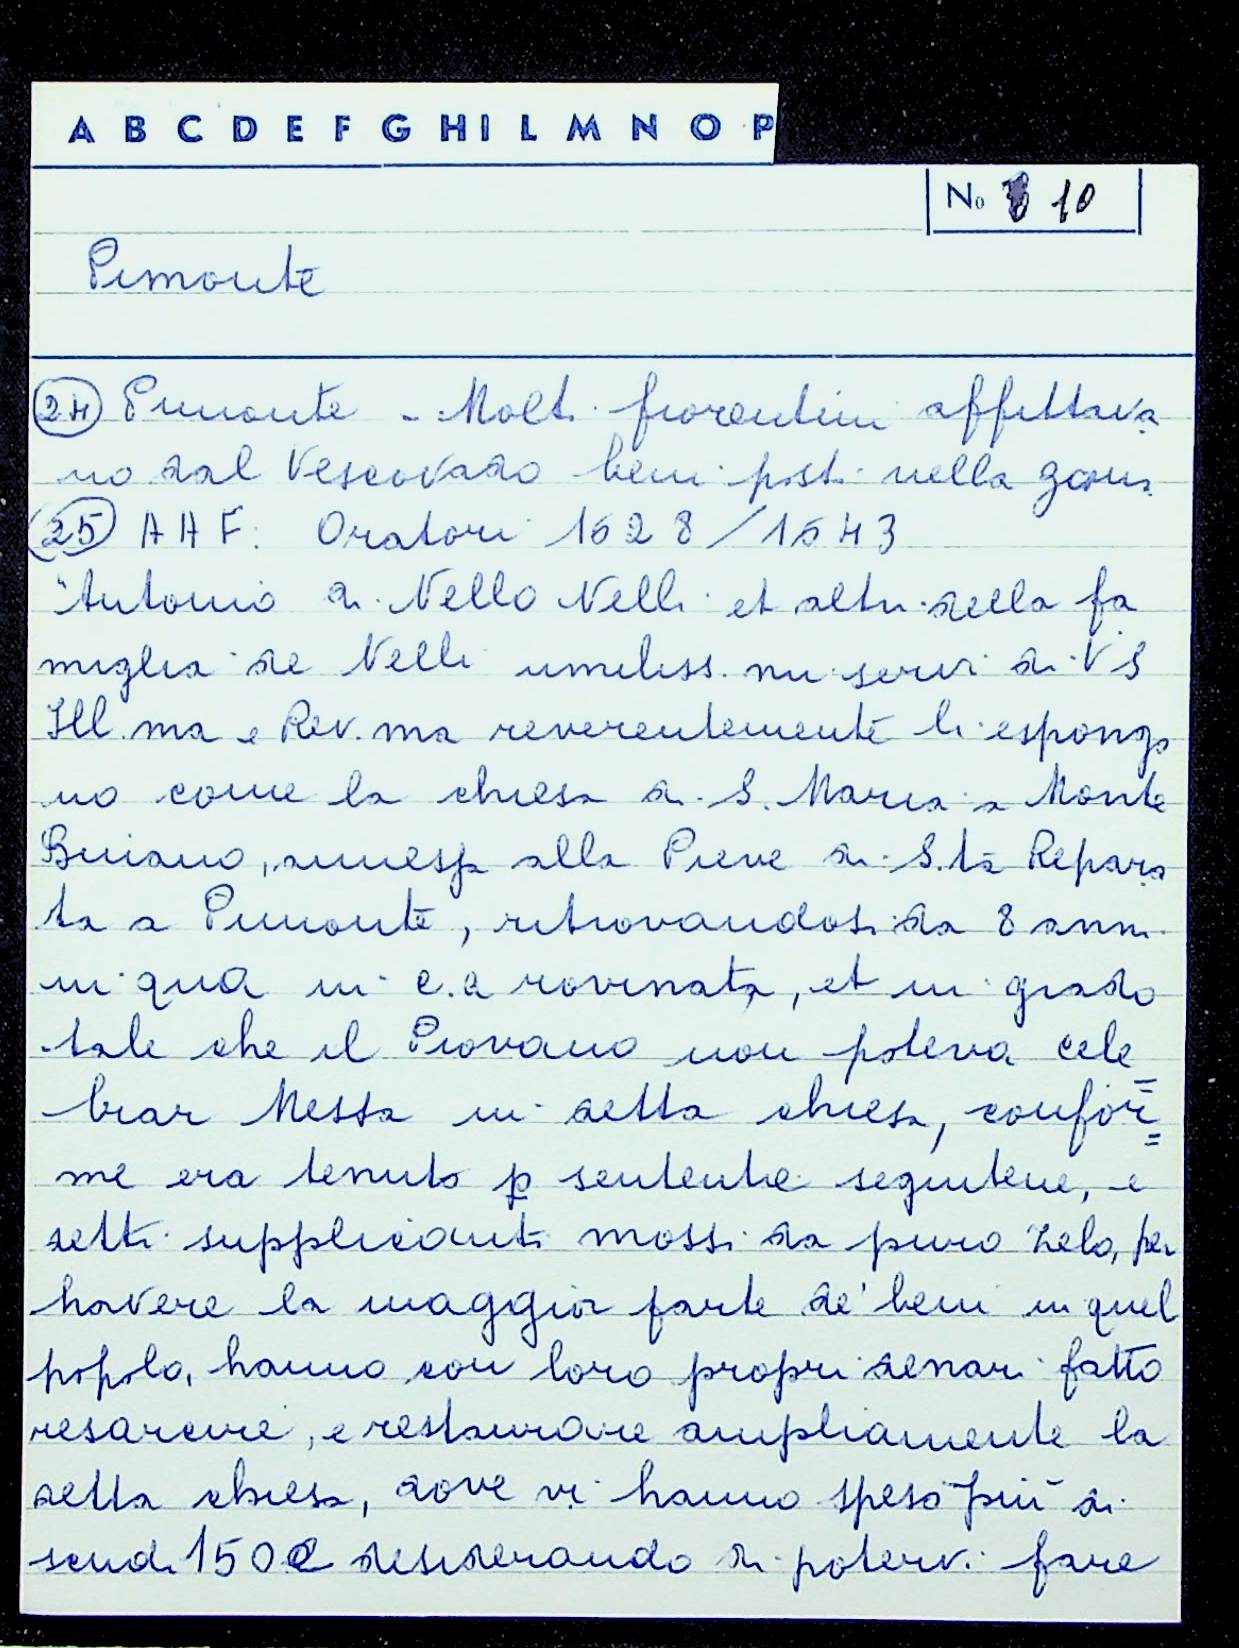 A B C D E F G H I L M N O P
No 10
Pimonte
24 Pimonte - Molti fiorentini affittava
no dal Vescovado beni posti nella zona
25 A A F. Oratori 1628/1643
"Antonio di Nello Nelli et altri della fa
miglia de Nelli umiliss.mi servi di V S
Ill.ma e Rev.ma reverentemente li espongo
no come la chiesa di S. Maria a Monte
Buiano, annessa alla Pieve di S.ta Repara
ta a Pimonte, ritrovandosi da 8 anni
in qua in c.a rovinata, et in grado
tale che il Piovano non poteva cele=
brar Messa in detta chiesa, confor=
me era tenuto p sententie seguitene, e
detti supplicanti mossi da puro zelo, per
havere la maggior parte de' beni in quel
popolo, hanno con loro propri denari fatto
resarcire, e restaurare ampliamente la
detta chiesa, dove vi hanno speso più di
scudi 150 desiderando di potervi fare